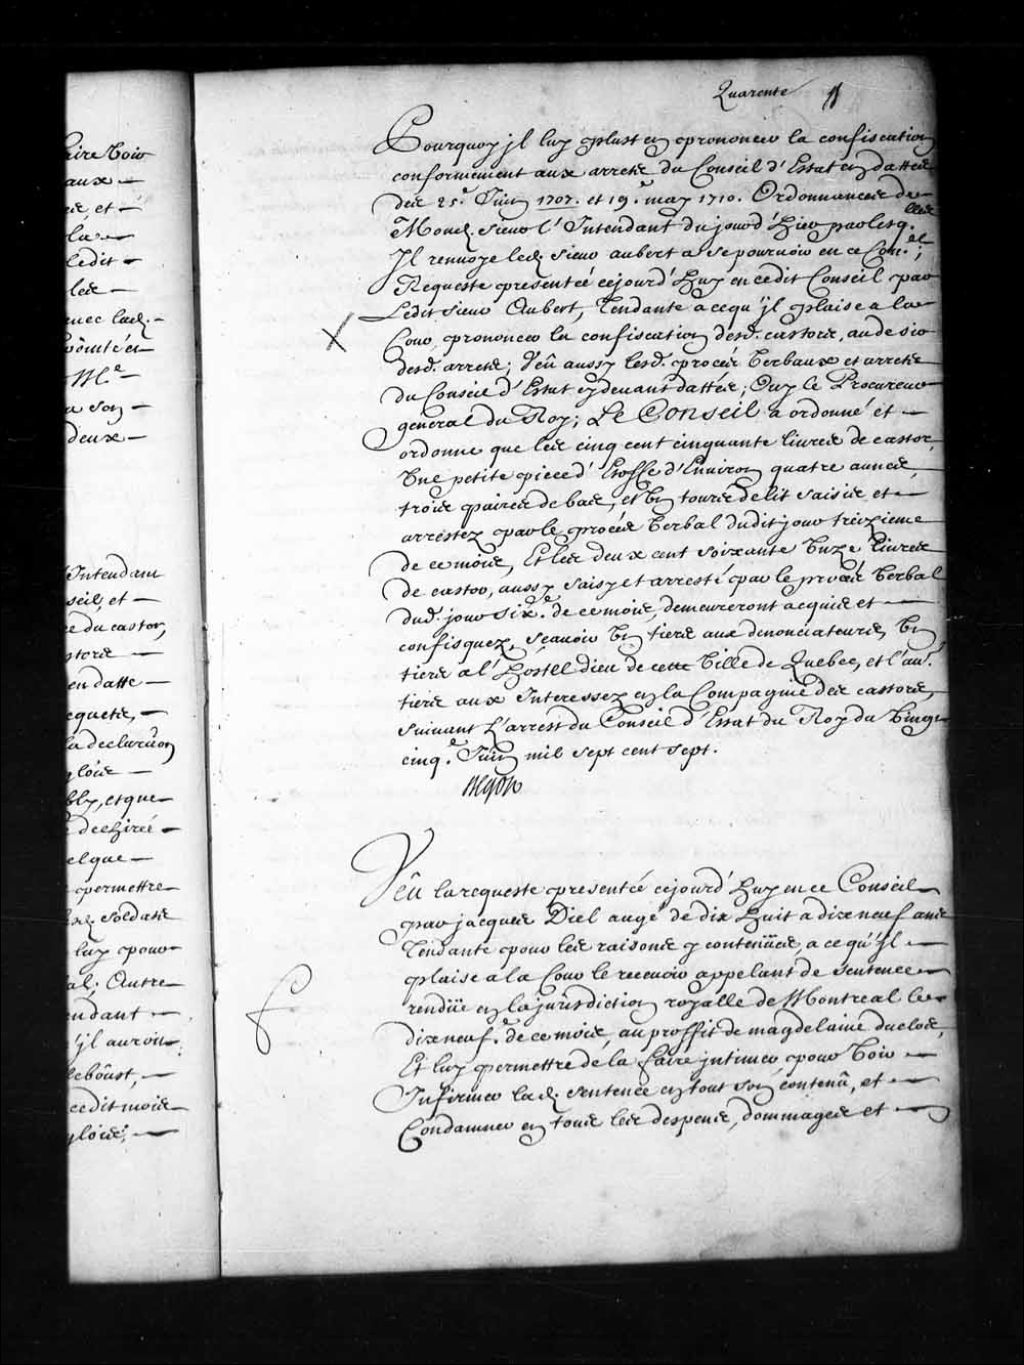 aire Voir
aux —
es, et —
la —
ledit —
les —
avec lad. —
M.e —
a son —
deux —
Intendant
seil, et —
e du castor,
stors —
en datte —
equeste, —
la declara͠on
glois —
bly, et que —
dechiré —
elque —
permettre
d. soldats
luy pour
al; Autre
endant —
'jl auroit
leboust, —
cedit mois
glois; —
Quarente
Pourquoy jl luy plust en prononcer la confiscation
conformement aux arrests du Conseil d'Estat en dattes
des 25.e Juin 1707. et 19.e may 1710. Ordonnances de
Mond. sieur l'Intendant du jour d'hier par lesq.lles
Il renvoye led. sieur aubert a se pourvoir en ce Con.el;
Requeste presentée cejourd'huy en cedit Conseil par
Ledit sieur Aubert, Tendante a ce qu'jl plaise a la
Cour, prononcer la confiscation desd. castors, au desir
desd. arrests; Vêu aussy lesd. procés Verbaux et arrests
du Conseil d'Estat cy devant dattés; Ouy le Procureur
general du Roy; Le Conseil a ordonné et —
ordonne que les cinq cent cinquante livres de castor,
Une petite piece d'Etoffe d'Environ quatre aunes,
trois paires de bas, et Un tour de lit saisis et —
arrestez par le procés Verbal dudit jour treizieme
de ce mois, Et les deux cent soixante Unze Livres
de castor, aussy saisy et arresté par le procés Verbal
dud. jour six.e de ce mois, demeureront acquis et —
confisquez, sçavoir Un tiers aux denonciateurs, Un
tiers a l'hostel dieu de cette Ville de Quebec, et l'au.e
tiers aux Interessez en la Compagnie des castors,
suivant L'arrest du Conseil d'Estat du Roy du Vingt
cinq.e Juin mil sept cent sept.
Begon
Vêu la requeste presentée cejourd'huy en ce Conseil
par jacques Diel augé de dix huit a dix neuf ans
Tendante pour les raisons y contenües, a ce qu'Jl —
plaise a la Cour le recevoir appelant de sentence
rendüe en la jurisdiction royalle de Montreal le
dix neuf.e de ce mois, au proffit de magdelaine duclos,
Et luy permettre de la faire jntimer pour Voir —
Infirmer lad. sentence en tout son contenû, et —
Condamner en tous les despens, dommages et —